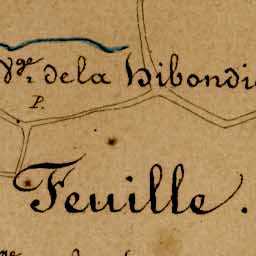 Vge. de la Hibondi
P.
Feuille.